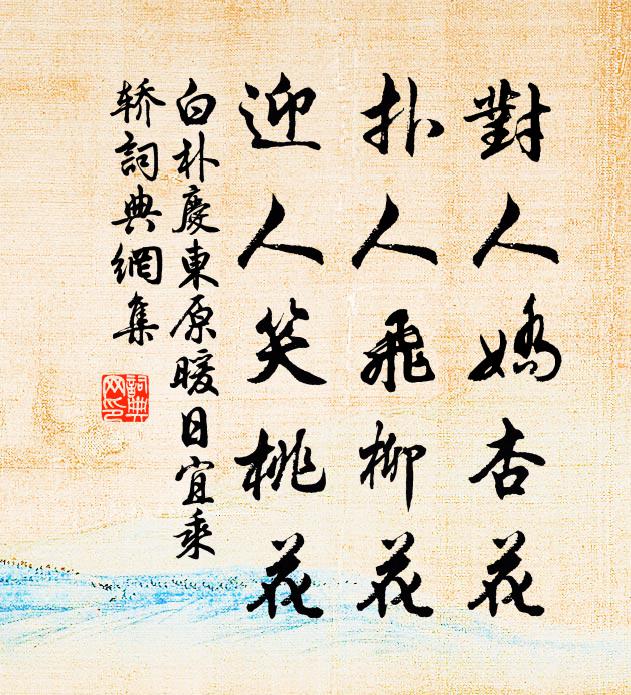 對人嬌杏花
扑人飛柳花
迎人笑桃花
白朴慶東原暖日宜乘
轿詞典網集
詞典
网印